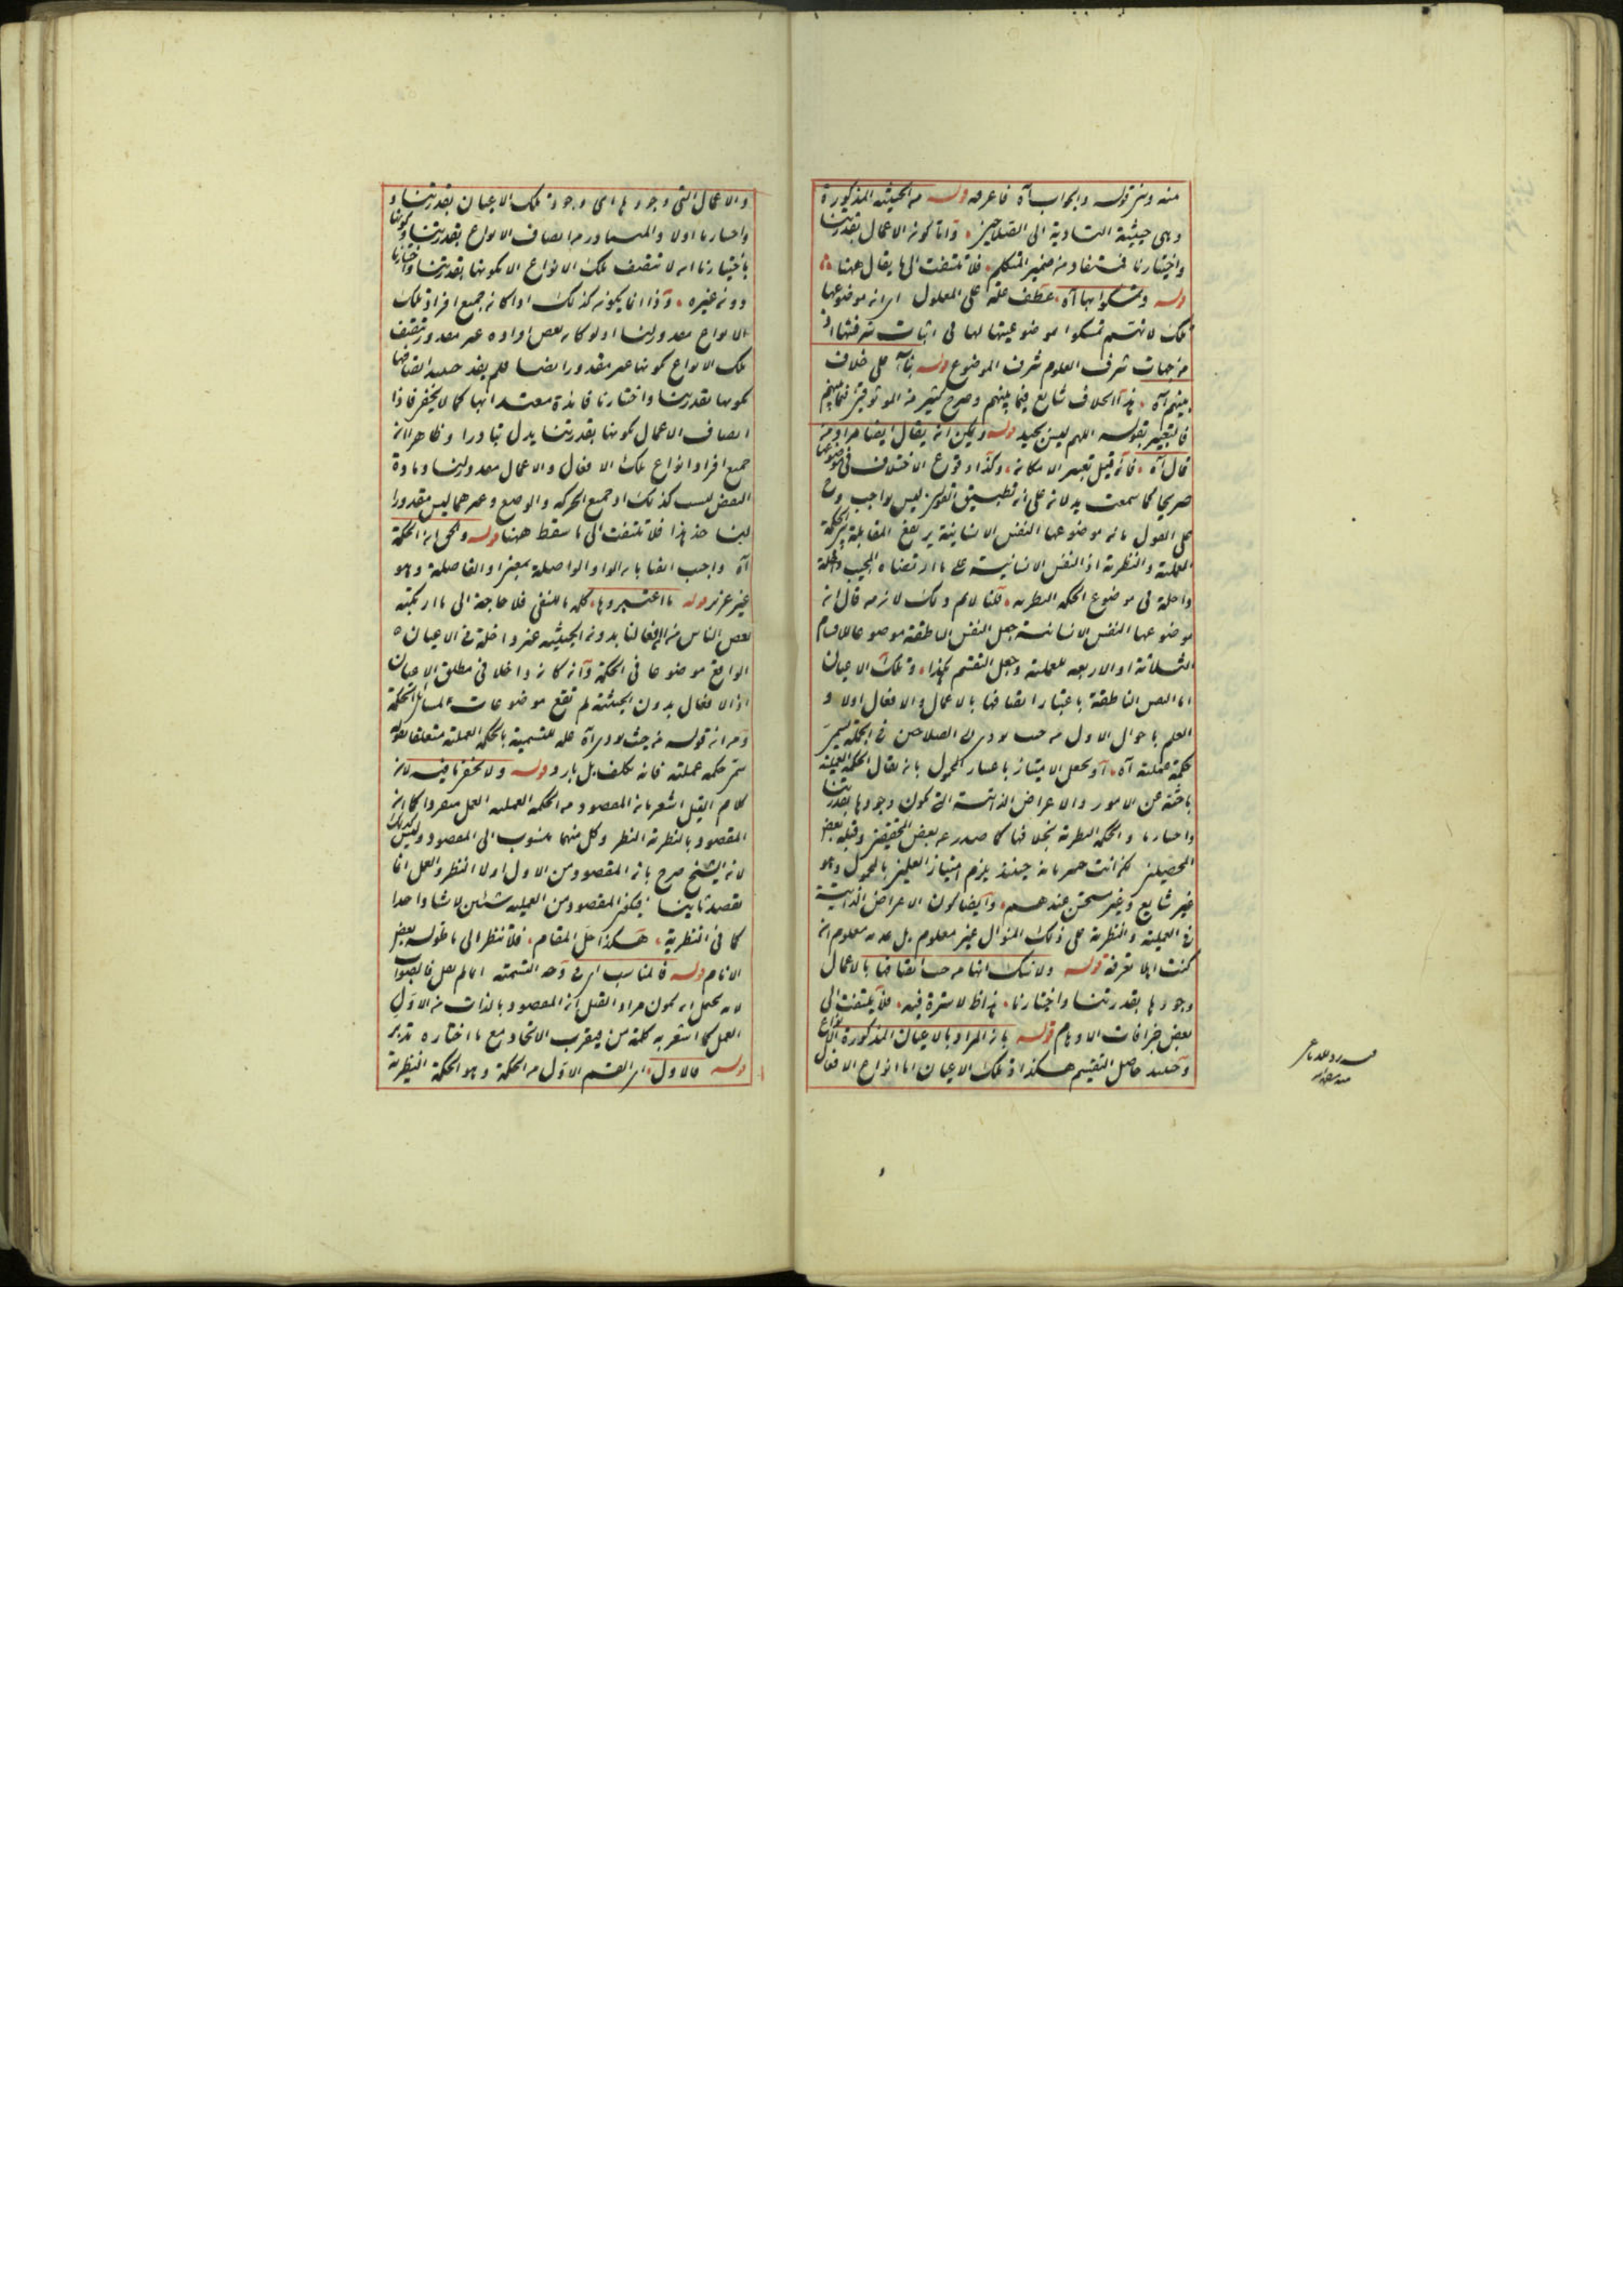 منه ومن قوله والجواب آه فاعرفه قوله من الحيثية المذكورة
وهي حيثية التأدية الى الصلاحين واما كون الاعمال بقدرتنا
واختيارنا فمستفاد من ضمير المتكلم فلا تلتفت الى ما يقال ههنا
قوله وتمسكوا بها آه عطف علة على المعلول اى انه موضوعها
تلك لانهم تمسكوا بموضوعيتها لها فى اثبات شرفها اذ
من جهات شرف العلوم شرف الموضوع قوله بناء على خلاف
بينهم آه هذا الخلاف شايع فيما بينهم وصرح كثير من الموثوقين فيما بينهم
فالتعبير بقوله اللهم ليس بجيد قوله ويمكن ان يقال ايضا مراد من
قال آه فانه قيل تعبير الامكان وكذا وقوع الاختلاف فى موضوعها
صريحا كما سمعت يدلان على ان تطبيق القولين ليس بواجب وح
على القول بان موضوعها النفس الانسانية يرتفع المقابلة بين الحكمة
العملية والنظرية اذ النفس الانسانية على ما ارتضاه المجيب داخلة
داخلة فى موضوع الحكمة النظرية قلنا لا نم ذلك لان من قال ان
موضوعها النفس الانسانية جعل النفس الناطقة موضوعا للاقسام
الثلاثة او الاربعة للعملية وجعل التقسيم هكذا وتلك الاعيان
اما النفس الناطقة باعتبار اتصافها بالاعمال والافعال اولا و
العلم باحوال الاول من حيث يؤدى الى الصلاحين فى الجملة يسمى
حكمة عملية آه او يجعل الامتياز باعتبار المحمول بان يقال الحكمة العملية
باحثة عن الامور والاعراض الذاتية التى يكون وجودها بقدرتنا
واختيارنا والحكمة النظرية بخلافها كما صدر عن بعض المحققين وقبله بعض
المحصلين لكن انت خبير بانه حينئذ يلزم امتياز العلمين بالمحمول وهو
غير شايع وغير مستحسن عندهم وايضا كون الاعراض الذاتية
فى العملية والنظرية على ذلك المنوال غير معلوم بل عدمه معلوم ان
كنت اهلا لمعرفته قوله ولا شك انها من حيث اتصافها بالاعمال
وجودها بقدرتنا واختيارنا هذا ظ لا سترة فيه فلا يلتفت الى
بعض خرافات الاوهام قوله بان المراد بالاعيان المذكورة الانواع
وحينئذ حاصل التقسيم هكذا وتلك الاعيان اما انواع الافعال
والاعمال التى وجودها اى وجود تلك الاعيان بقدرتنا و
واختيارنا اولا والمتبادر من اتصاف الانواع بقدرتنا وكونها
باختيارنا ان لا تتصف تلك الانواع الا بكونها بقدرتنا واختيارنا
دون غيره وذا انما يكون كذلك اذا كان جميع افراد تلك
الانواع مقدورلنا اذ لو كان بعض افراده غير مقدور تتصف
تلك الانواع بكونها غير مقدور ايضا فلم يفد حينئذ اتصافها
بكونها بقدرتنا واختيارنا فائدة معتد بها كما لا يخفى فاذا
اتصاف الاعمال بكونها بقدرتنا يدل تبادرا وظاهرا ان
جميع افراد انواع تلك الافعال والاعمال مقدورلنا ومادة
البعض ليست كذلك اذ جميع الحركة والوضع وغيرهما ليس مقدورا
لنا خذ هذا فلا تلتفت الى ما سقط ههنا قوله والحق ان الحكمة
آه واجب ايضا بان الواو الواصلة بمعنى او الفاصلة وهو
غير عزيز قوله ما اعتبروها كلمة ما للنفى فلا حاجة الى ما ارتكبته
بعض الناس من ان افعالنا بدون الحيثية غير داخلة فى الاعيان
الواقع موضوعا فى الحكمة وانه كان داخلا فى مطلق الاعيان
اذ الافعال بدون الحيثية لم تقع موضوعات لمسائل الحكمة
ومن ان قوله من حيث يؤدى آه علة للتسمية بالحكمة العملية متعلقا بقوله
تسمى حكمة عملية فانه تكلف بل بارد قوله ولا يخفى ما فيه لان
كلام القيل اشعر بان المقصود من الحكمة العملية العمل منفردا كما ان
المقصود بالنظرية النظر وكل منهما منسوب الى المقصود وليس كذلك
لان الشيخ صرح بان المقصود من الاول اولا النظر والعمل انما
يقصد ثانيا فيكون المقصود من العملية شيئين لا شيئا واحدا
كما فى النظرية هكذا حل المقام فلا تنظر الى ما غوله بعض
الانام قوله فالمناسب اى فى وجه التسمية انما لم يقل فالصواب
لانه يحتمل ان يكون مراد القيل ان المقصود بالذات من الاول
العمل كما اشعر به كلمة من فيقرب الاتحاد مع ما اختاره تدبر
قوله فالاول اى القسم الاول من الحكمة وهو الحكمة النظرية